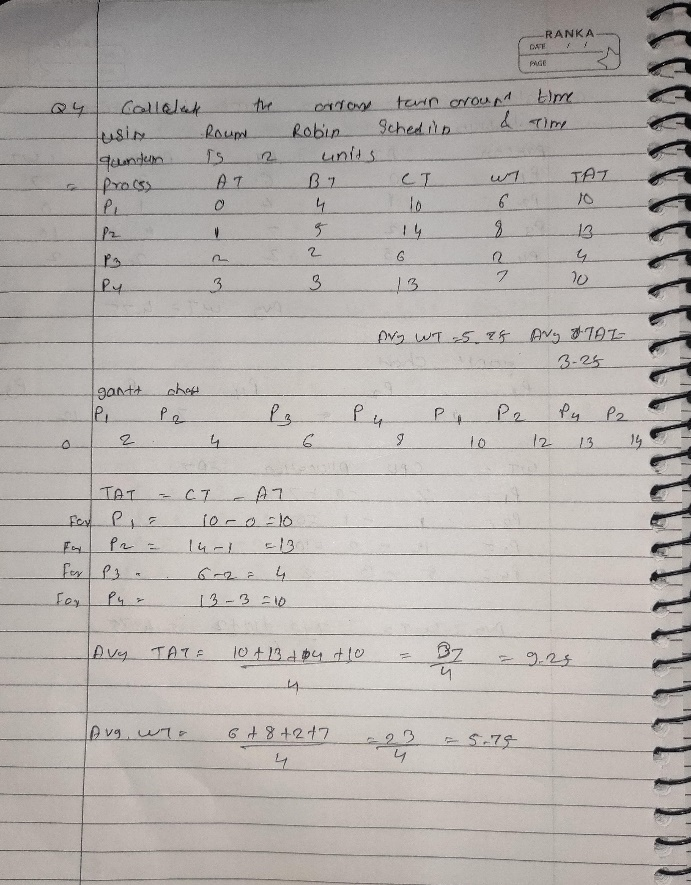 RANKA
DATE / /
PAGE
Q4 the turn around time
using Round Robin & Time
quantum is 2 units
= Process AT BT CT WT TAT
P1 0 4 10 6 10
P2 1 5 14 8 13
P3 2 2 6 2 4
P4 3 3 13 7 10
Avg WT = Avg TAT=
gantt chart
P1 P2 P3 P4 P1 P2 P4 P2
0 2 4 6 8 10 12 13 14
TAT = CT - AT
For P1 = 10-0=10
For P2 = 14-1 =13
For P3 = 6-2= 4
For P4 = 13-3=10
Avg TAT= 10+13+04+10 / 4 = 37 / 4 = 9.25
Avg. WT= 6+8+2+7 / 4 = 23 / 4 = 5.75